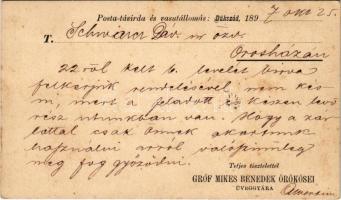 Posta-távirda és vasutállomás: Bükszád, 1897 okt 25.
T. Schwarcz Dáv. úr özv.
Orosházán
22ről kelt b. levelét birva
felkérjük rendelésével nem kés
ni, mert a feladott és készen levő
rész utunkban van. Hogy a
csak Önnek akartunk
használni arról valószinüleg
meg fog győződni.
Teljes tisztelettel
GRÓF MIKES BENEDEK ÖRÖKÖSEI
ÜVEGGYÁRA